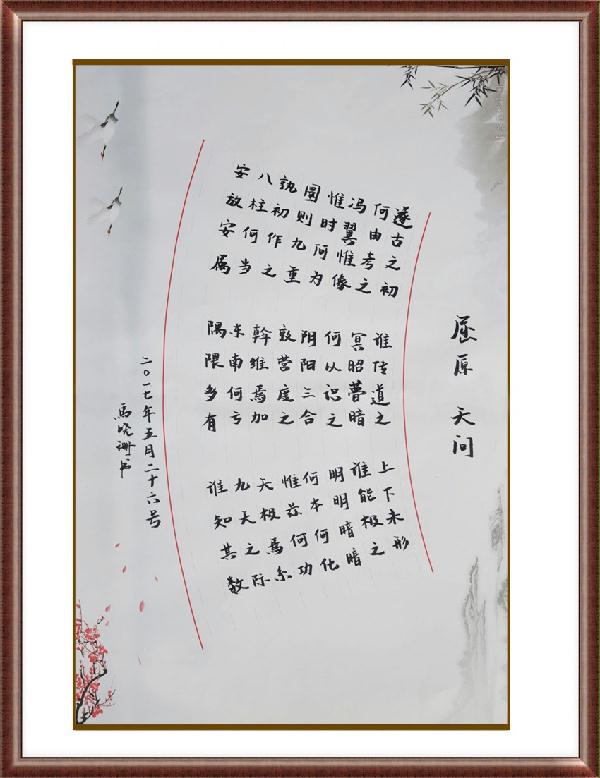 屈原 天问
遂古之初 谁传道之 上下未形
何由考之 冥昭瞢暗 谁能极之
冯翼惟像 何以识之 明明暗暗
惟时何为 阴阳三合 何本何化
圜则九重 孰营度之 惟兹何功
孰初作之 幹维焉加 天极焉系
八柱何当 东南何亏 九天之际
安放安属 隅隈多有 谁知其数
二〇一七年五月二十六号
马晓珊书